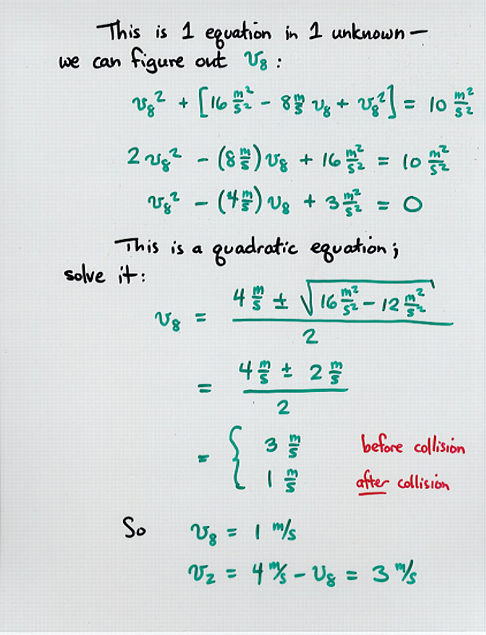 This is 1 equation in 1 unknown —
we can figure out v₈ :
v₈² + [16 m²/s² - 8 m/s v₈ + v₈²] = 10 m²/s²
2 v₈² - (8 m/s) v₈ + 16 m²/s² = 10 m²/s²
v₈² - (4 m/s) v₈ + 3 m²/s² = 0
This is a quadratic equation;
solve it:
v₈ = (4 m/s ± √(16 m²/s² - 12 m²/s²)) / 2
= (4 m/s ± 2 m/s) / 2
= { 3 m/s before collision
1 m/s after collision
So v₈ = 1 m/s
v₂ = 4 m/s - v₈ = 3 m/s